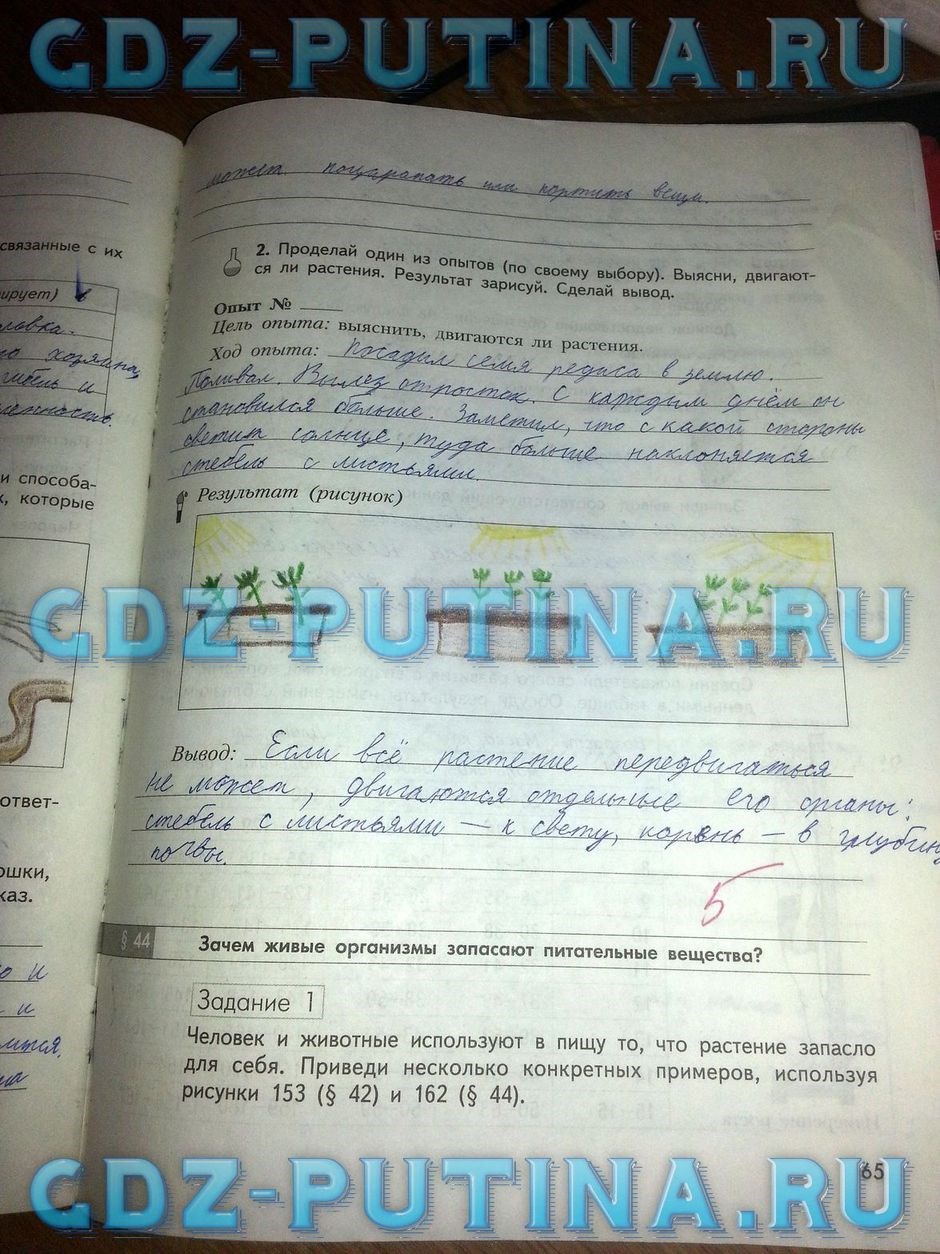 GDZ-PUTINA.RU
может поцарапать или портить вещи.
связанные с их
2. Проделай один из опытов (по своему выбору). Выясни, двигают-
ся ли растения. Результат зарисуй. Сделай вывод.
ирует)
Опыт №
Цель опыта: выяснить, двигаются ли растения.
ловка.
о хозяина,
гибель и
Ход опыта: Посадил семя редиса в землю.
Поливал. Вылез отросток. С каждым днём он
становился больше. Заметил, что с какой стороны
светит солнце, туда больше наклоняется
стебель с листьями.
и способа-
х, которые
Результат (рисунок)
GDZ-PUTINA.RU
Вывод: Если всё растение передвигаться
не может, двигаются отдельные его органы:
стебель с листьями — к свету, корень — в глубину
почвы.
ответ-
ошки,
каз.
5
§ 44 Зачем живые организмы запасают питательные вещества?
о и
и
Задание 1
Человек и животные используют в пищу то, что растение запасло
для себя. Приведи несколько конкретных примеров, используя
рисунки 153 (§ 42) и 162 (§ 44).
65
GDZ-PUTINA.RU